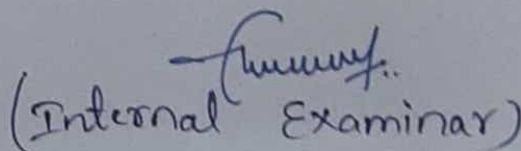 (Internal Examinar)